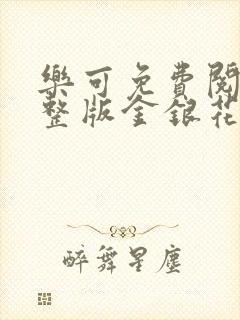 樂可免費閱
整版金銀花
醉舞星塵